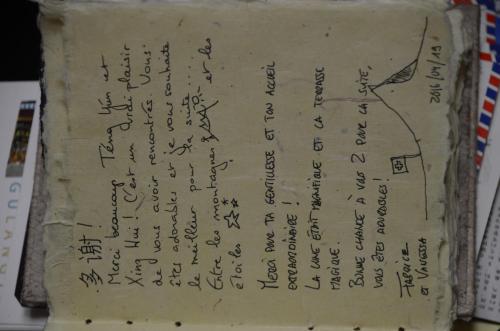 多谢!
Merci beaucoup Teng Yun et
Xing Hui! C'est un vrai plaisir
de vous avoir rencontrés. Vous
êtes adorables et je vous souhaite
le meilleur pour la suite....
Entre les montagnes et les
étoiles
MERCI POUR TA GENTILLESSE ET TON ACCUEIL
EXTRAORDINAIRE!
LA LUNE ÉTAIT MAGNIFIQUE ET LA TERRASSE
MAGIQUE.
BONNE CHANCE À VOUS 2 POUR LA SUITE,
VOUS ÊTES ADORABLES!
FABRICE
ET VANESSA
2016/04/19
GULAN